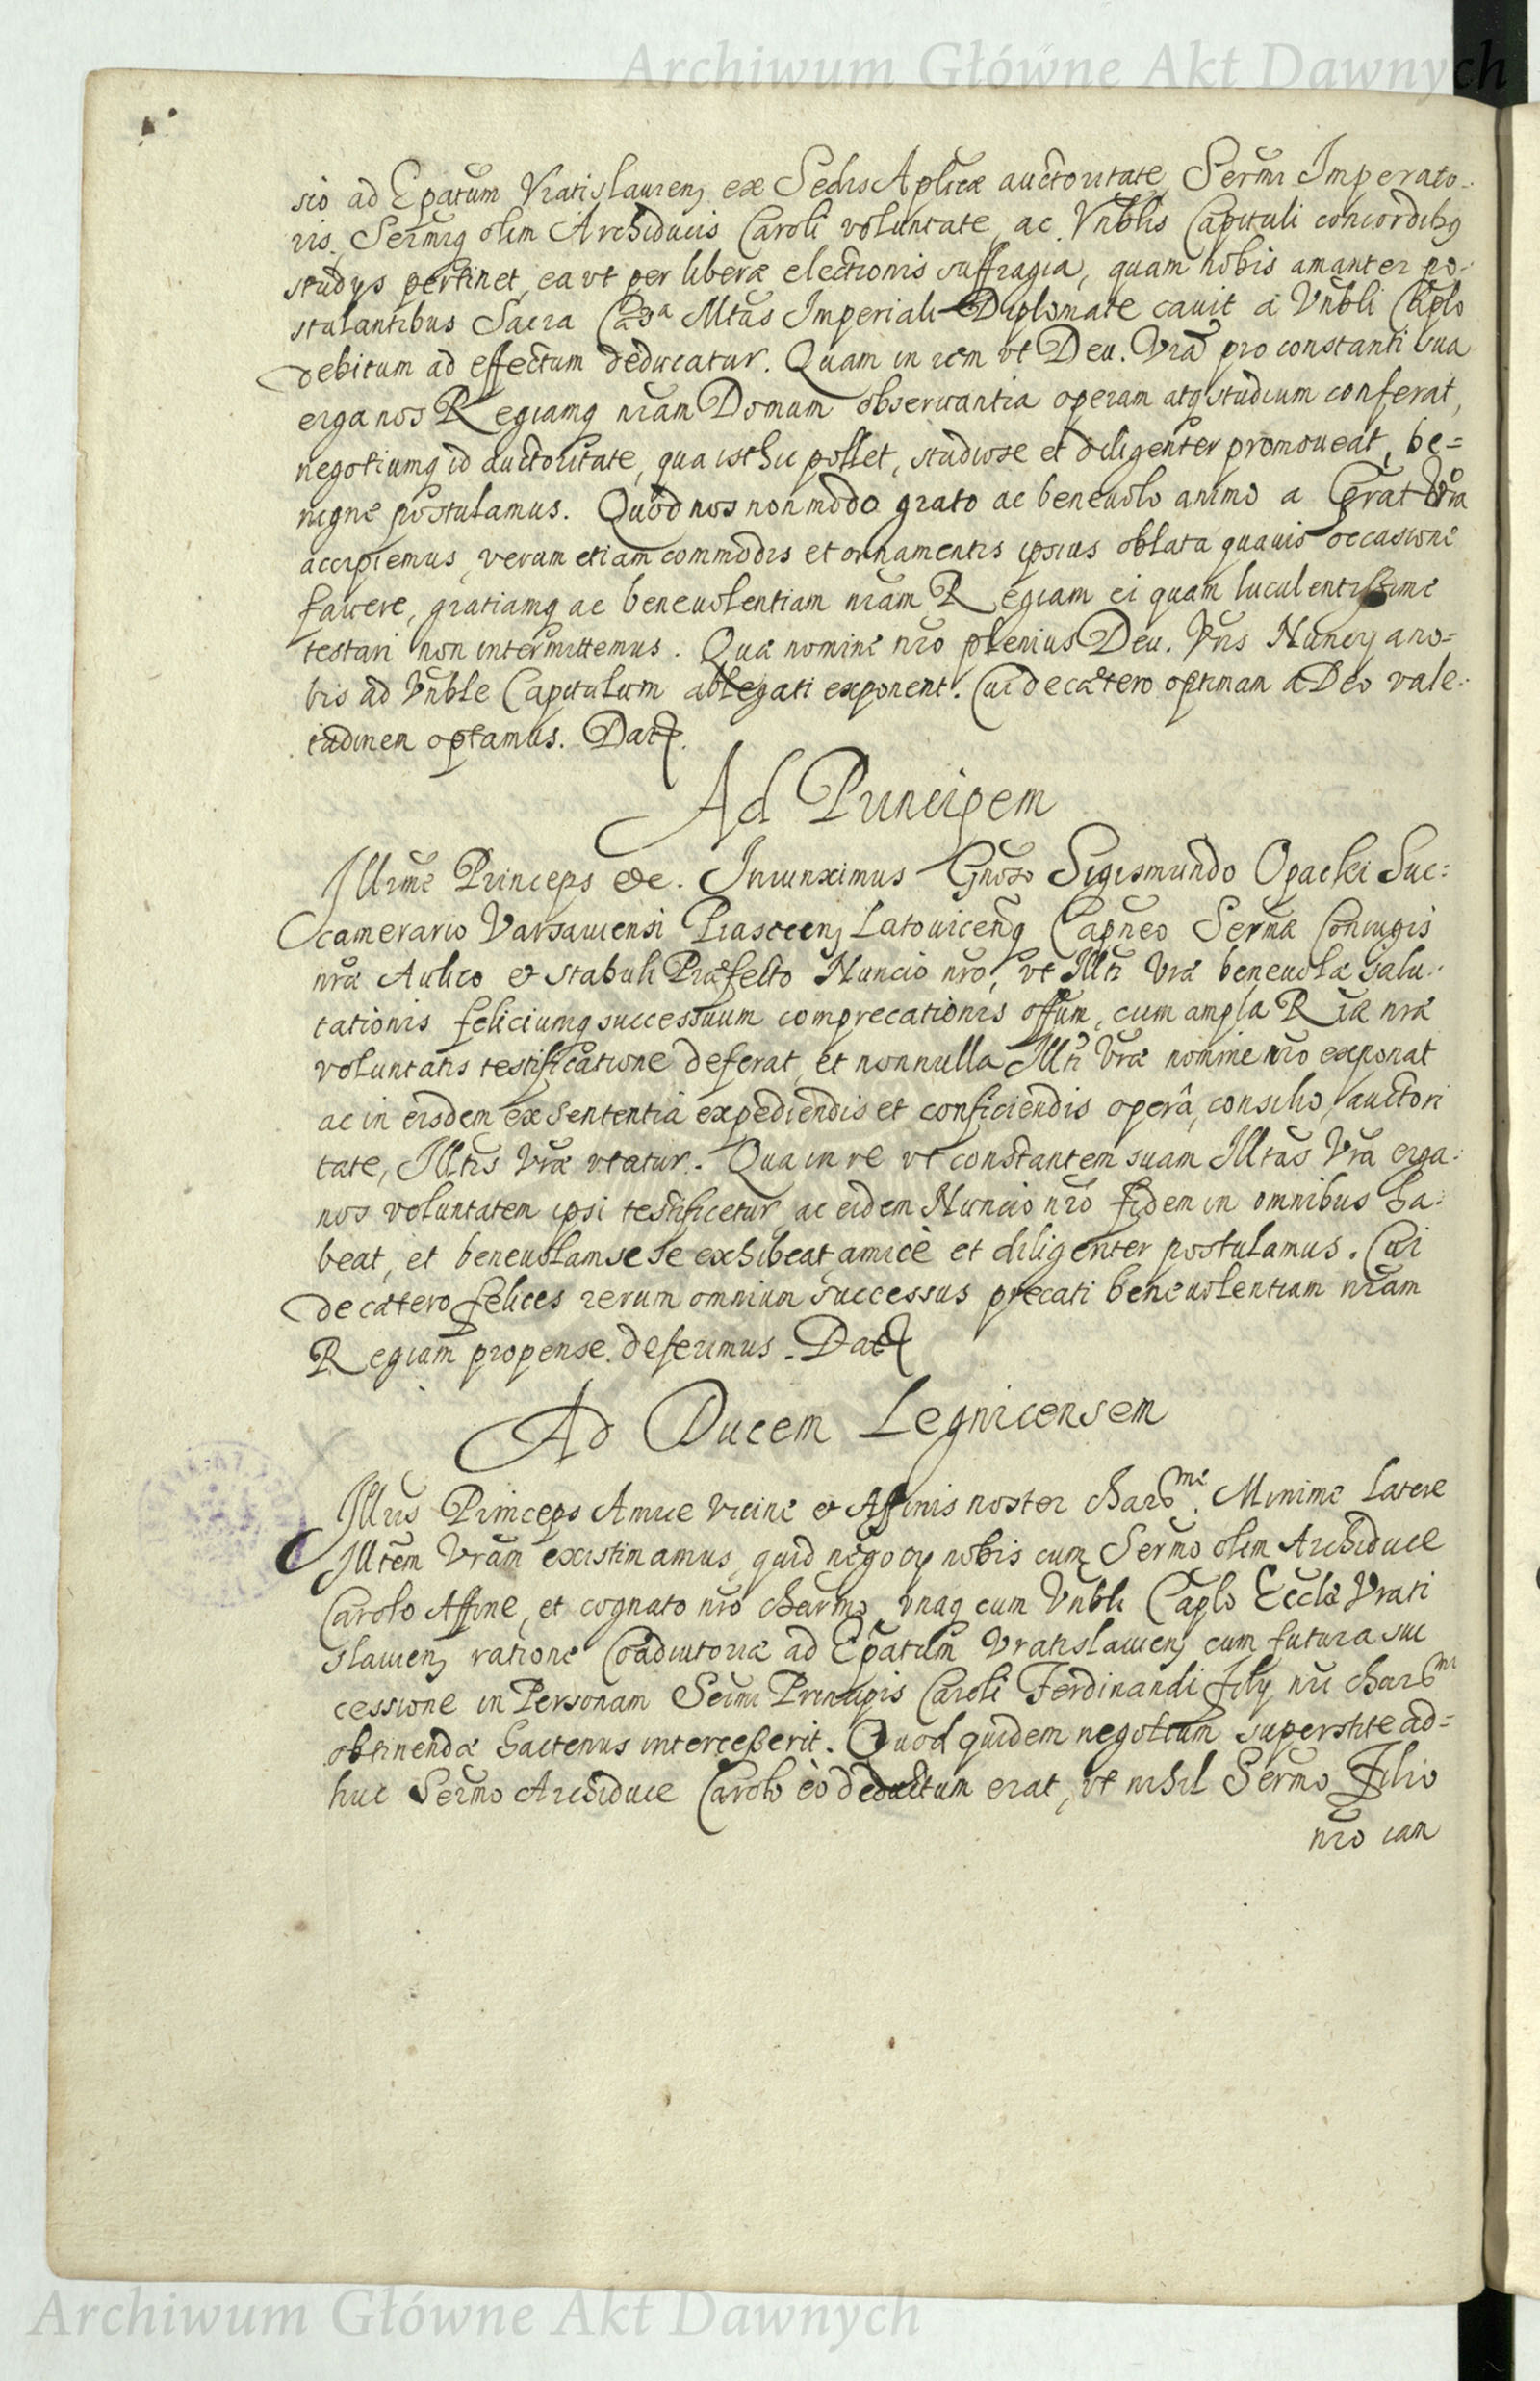 Archiwum Główne Akt Dawnych
sio ad Epatum Vratislauien ex Sedis Aplicæ auctoritate, Sermi Imperato-
ris, Sermiq olim Archiducis Caroli voluntate, ac Vnblis Capituli concordibq
studys pertinet, ea vt per liberæ electionis suffragia, quam nobis amanter po-
stulantibus Sacra Cæsa Mtas Imperiali Diplomate cauit a Vnbli Caplo
debitum ad effectum deducatur. Quam in rem vt Deu. Vra pro constanti sua
erga nos Regiamq nram Domum obseruantia operam atq studium conferat,
negotiumq id auctoritate, qua isthic pollet, studiose et diligenter promoueat, be-
nigne postulamus. Quod nos non modo grato ac beneuolo animo a Grat Vra
accipiemus, verum etiam commodis et ornamentis ipsius oblata quauis occasione
fauere, gratiamq ac beneuolentiam nram Regiam ei quam luculentissime
testari non intermittemus. Quæ nomine nro plenius Deu. Vris Nuncy a no-
bis ad Vnble Capitulum ablegati exponent. Cui de cætero optimam a Deo vale-
tudinem optamus. Dat.
Ad Principem
Illrme Princeps etc. Iniunximus Gnoso Sigismundo Opacki Suc-
camerario Varsauiensi Piasecen Latouicenq Capneo Sermæ Coniugis
nræ Aulico et Stabuli Præfecto Nuncio nro, vt Illti Vræ beneuolæ salu-
tationis feliciumq successuum comprecationis offum, cum ampla Riæ nræ
voluntatis testificatione deferat, et nonnulla Illti Vræ nomine nro exponat
ac in eisdem ex sententia expediendis et conficiendis operâ, consilio, auctori
tate, Illtis Vræ vtatur. Qua in re vt constantem suam Illtas Vra erga
nos voluntatem ipsi testificetur, ac eidem Nuncio nro fidem in omnibus ha-
beat, et beneuolam sese exhibeat amicè et diligenter postulamus. Cui
de cætero felices rerum omnium successus precati beneuolentiam nram
Regiam propense deferimus. Dat
Ad Ducem Legnicensem
Illris Princeps Amice Vicine et Affinis noster charsme. Minime latere
Illtem Vram existimamus, quid negocy nobis cum Sermo olim Archiduce
Carolo Affine, et cognato nro charmo, vnaq cum Vnbli Caplo Ecclæ Vrati
slauien ratione Coadiutoriæ ad Epatum Vratislauien cum futura suc
cessione in Personam Sermi Principis Caroli Ferdinandi Fily nri charsmi
obtinendæ hactenus intercesserit. Quod quidem negotium superstite ad-
huc Sermo Archiduce Carolo eò deductum erat, vt nihil Sermo Filio
nro iam
Archiwum Główne Akt Dawnych